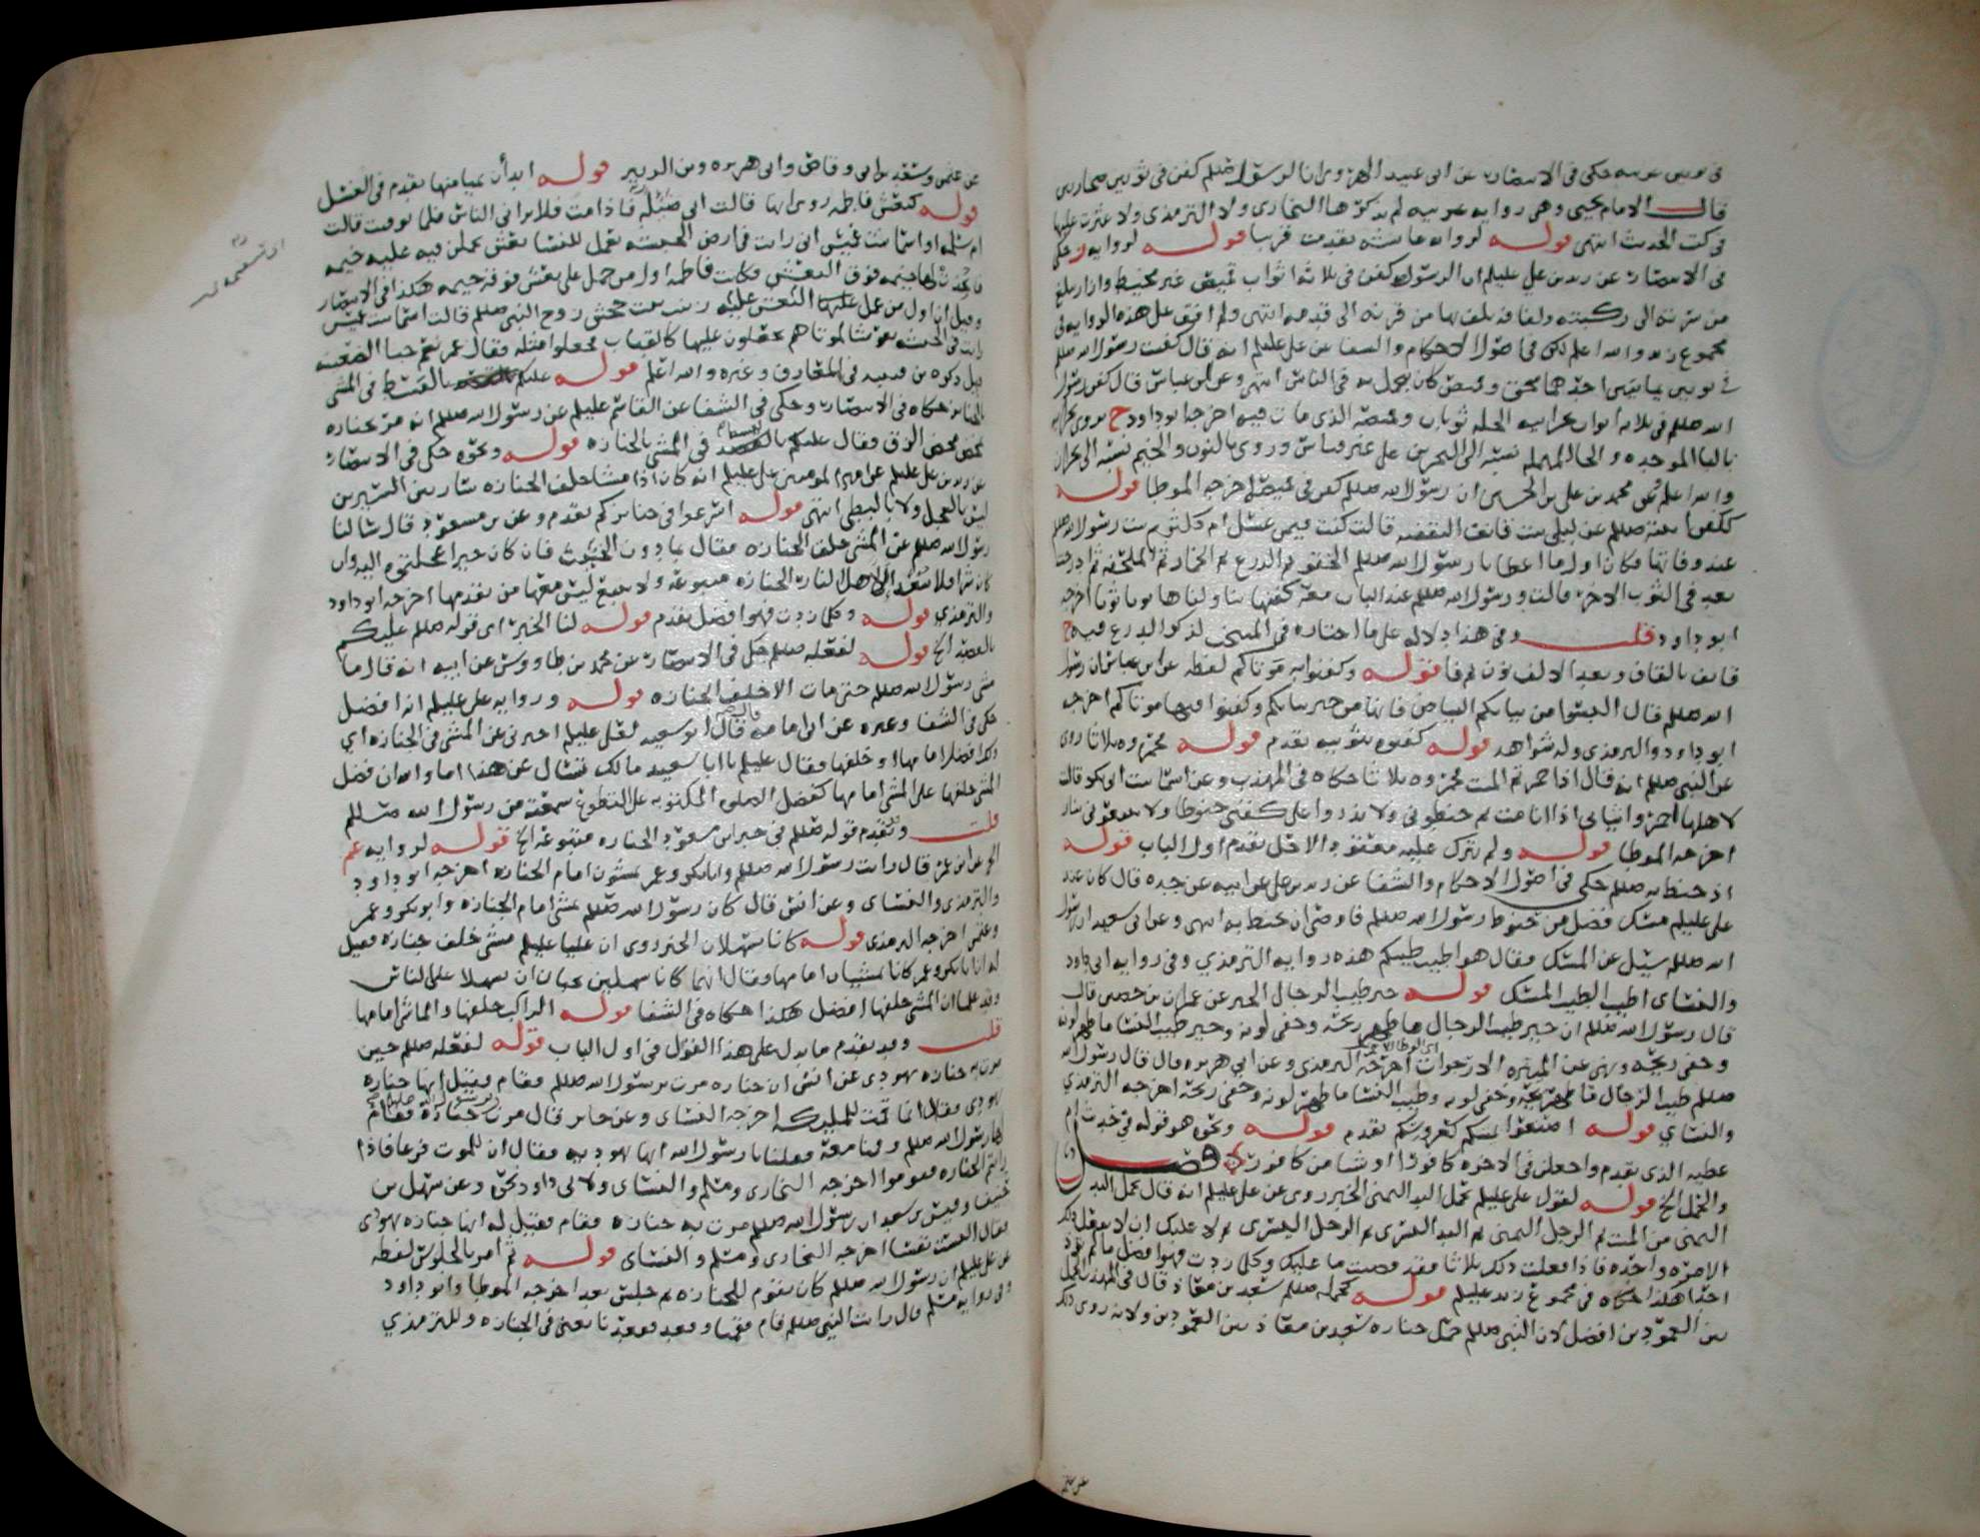 في ثوبين حكى في الانتصار عن ابي عبيد الهروي ان الرسول صللم كفن في ثوبين صحاريين
قال الامام يحيى وهي رواية غريبة لم يذكرها البخاري ولا الترمذي ولا عثرت عليها
في كتب الحديث انتهى قوله لرواية عائشة تقدمت قريبا قوله لرواية حكى
في الانتصار عن زيد بن علي عليلم ان الرسول كفن في ثلاثة اثواب قميص غير مخيط وازار يبلغ
من سرته الى ركبته ولفافة يلف بها من قرنه الى قدمه انتهى ولم اقف على هذه الرواية في
مجموع زيد والله اعلم لكن في اصول الاحكام والشفا عن علي عليلم انه قال كفنت رسول الله صللم
في ثوبين يمانيين احدهما سحق وقميص كان يتجمل به في الناس انتهى وعن ابن عباس قال كفن رسول
الله صللم في ثلاثة اثواب نجرانية الحلة ثوبان وقميصه الذي مات فيه اخرجه ابو داود ح يروى بحرانية
بالبا الموحدة والحا المهملة نسبة الى البحرين على غير قياس وروي بالنون والجيم نسبة الى نجران
والله اعلم وعن محمد بن علي بن الحسين ان رسول الله صللم كفن في قميص اخرجه الموطا قوله
ككفن ابنته صللم عن ليلى بنت قانف الثقفية قالت كنت فيمن غسل ام كلثوم بنت رسول الله صللم
عند وفاتها فكان اول ما اعطانا رسول الله صللم الحقو ثم الدرع ثم الخمار ثم الملحفة ثم ادرجت
بعد في الثوب الاخر قالت ورسول الله صللم عند الباب معه كفنها يناولناها ثوبا ثوبا اخرجه
ابو داود قلت وفي هذا دلالة على ما اختاره في لذكر الدرع فيه ح
قانف بالقاف وبعد الالف نون ثم فا قوله وكفنوا به موتاكم لفظه عن ابن عباس ان رسول
الله صللم قال البسوا من ثيابكم البياض فانها من خير ثيابكم وكفنوا فيها موتاكم اخرجه
ابو داود والترمذي وله شواهد قوله كفنوه بثوبيه تقدم قوله بجمره ثلاثا روي
عن النبي صللم انه قال اذا جمرتم الميت فجمروه ثلاثا حكاه في المهذب وعن اسما بنت ابي بكر قالت
لاهلها اجمروا ثيابي اذا انا مت ثم حنطوني ولا تذروا على كفني حنوطا ولا تتبعوني بنار
اخرجه الموطا قوله ولم يترك عليه مفتقد الاخل تقدم اول الباب قوله
اذ حنط به صللم حكى في اصول الاحكام والشفا عن زيد بن علي عن ابيه عن جده قال كان عند
علي عليلم مسك فضل من حنوط رسول الله صللم فاوصى ان يحنط به انتهى وعن ابي سعيد ان رسول
الله صللم سئل عن المسك فقال هو اطيب طيبكم هذه رواية الترمذي وفي رواية ابي داود
والنسائي اطيب الطيب المسك قوله خير طيب الرجال الخبر عن عمران بن حصين قال
قال رسول الله صللم ان خير طيب الرجال ما ظهر ريحه وخفي لونه وخير طيب النسا ما ظهر لونه
وخفي ريحه ونهى عن الميثرة الارجوان اخرجه الترمذي وعن ابي هريرة قال قال رسول الله
صللم طيب الرجال ما ظهر ريحه وخفي لونه وطيب النسا ما ظهر لونه وخفي ريحه اخرجه الترمذي
والنسائي قوله اصنعوا بميتكم كعروسكم تقدم قوله ونحوه هو قوله في حديث ام
عطية الذي تقدم واجعلن في الاخرة كافورا او شيا من كافور فصل
والحمل الخ قوله لقول علي عليلم تحمل اليد اليمنى الخبر روي عن علي عليلم انه قال تحمل اليد
اليمنى من الميت ثم الرجل اليمنى ثم اليد اليسرى ثم الرجل اليسرى ثم لا عليك ان لا تفعل ذلك
الا مرة واحدة فاذا فعلت ذلك ثلاثا فقد قضيت ما عليك وكلما زدت فهو افضل ما لم تؤذ
احدا هكذا حكاه في مجموع زيد عليلم قوله لحمله صللم سعد بن معاذ قال في المهذب الحمل
بين العمودين افضل لان النبي صللم حمل جنازة سعد بن معاذ بين العمودين ولانه روي ذلك
عن عثمن وسعد بن ابي وقاص وابي هريرة وبن الزبير قوله ابدأن بميامنها تقدم في الغسل
قوله كنعش فاطمة روي انها قالت ضئيلة فاذا مت فلا يراني الناس فلما توفيت قالت
ام سلمة او اسما بنت عميس اني رايت في ارض الحبشة يعمل للنسا نعش يجعلن فيه عليه خيمة
فاتخذت لها خيمة فوق النعش فكانت فاطمة اول من حمل على نعش فوقه خيمة هكذا في الانتصار
وقيل ان اول من عمل عليها النعش زينب بنت جحش زوج النبي صللم قالت اسما بنت عميس
رايت في الحبشة نعوشا لموتاهم يجعلون عليها كالقباب فجعلوا مثله فقال عمر نعم خبا الظعينة
ذكره بن قتيبة في المعارف وغيره والله اعلم قوله عليكم بالقسط في المشي
بالجنايز حكاه في الانتصار وحكى في الشفا عن القاسم عليلم عن رسول الله صللم انه مر بجنازة
تمخض مخض الزق فقال عليكم بالقصد في المشي بالجنازة قوله ونحوه حكى في الانتصار
عن زيد بن علي عليلم عن امير المومنين علي عليلم انه كان اذا مشا خلف الجنازة سار بين السيرين
ليس بالعجل ولا بالبطي انتهى قوله اسرعوا في جنايزكم تقدم وعن بن مسعود قال سالنا
رسول الله صللم عن المشي خلف الجنازة فقال ما دون الخبب فان كان خيرا عجلتموه اليه وان
كان شرا فلا يبعد الا اهل النار الجنازة متبوعة ولا تتبع ليس معها من تقدمها اخرجه ابو داود
والترمذي قوله وكلما زدت فهو افضل تقدم قوله لنا الخبر اي قوله صللم عليكم
بالقصد الخ قوله لفعله صللم حكى في الانتصار عن محمد بن طاووس عن ابيه انه قال ما
مشى رسول الله صللم حتى مات الا خلف الجنازة قوله ورواية علي عليلم انه افضل
حكى في الشفا وغيره عن ابي امامة قال ابو سعيد لعلي عليلم اخبرني عن المشي في الجنازة اي
ذلك افضل امامها او خلفها فقال عليلم يا ابا سعيد مالك تسال عن هذا اما والله ان فضل
المشي خلفها على المشي امامها كفضل الصلوة المكتوبة على التطوع سمعته من رسول الله صللم
قلت وتقدم قوله صللم في خبر ابن مسعود الجنازة متبوعة الخ قوله لرواية عم
الخ عن ابن عمر قال رايت رسول الله صللم وابا بكر وعمر يمشون امام الجنازة اخرجه ابو داود
والترمذي والنسائي وعن انس قال كان رسول الله صللم يمشي امام الجنازة وابو بكر وعمر
وعثمن اخرجه الترمذي قوله كانا سهلان الخبر روي ان عليا عليلم مشى خلف جنازة فقيل
له ان ابا بكر وعمر كانا يمشيان امامها فقال انهما كانا سهلين يحبان ان يسهلا على الناس
وقد علما ان المشي خلفها افضل هكذا حكاه في الشفا قوله الراكب خلفها والماشي امامها
قلت وقد تقدم ما يدل على هذا القول في اول الباب قوله لفعله صللم حين
مرت به جنازة يهودي عن انس ان جنازة مرت برسول الله صللم فقام فقيل انها جنازة
يهودي فقال انما قمت للمليكة اخرجه النسائي وعن جابر قال مرت جنازة فقام
لها رسول الله صللم وقمنا معه فقلنا يا رسول الله انها يهودية فقال ان للموت فزعا فاذا
رايتم الجنازة فقوموا اخرجه البخاري ومسلم والنسائي ولابي داود نحوه وعن سهل بن
حنيف وقيس بن سعد ان رسول الله صللم مرت به جنازة فقام فقيل له انها جنازة يهودي
فقال اليست نفسا اخرجه البخاري ومسلم والنسائي قوله ثم امر بالجلوس لفظه
عن علي عليلم ان رسول الله صللم كان يقوم للجنازة ثم جلس بعد اخرجه الموطا وابو داود
وفي رواية مسلم قال رايت النبي صللم قام فقمنا وقعد فقعدنا يعني في الجنازة وللترمذي